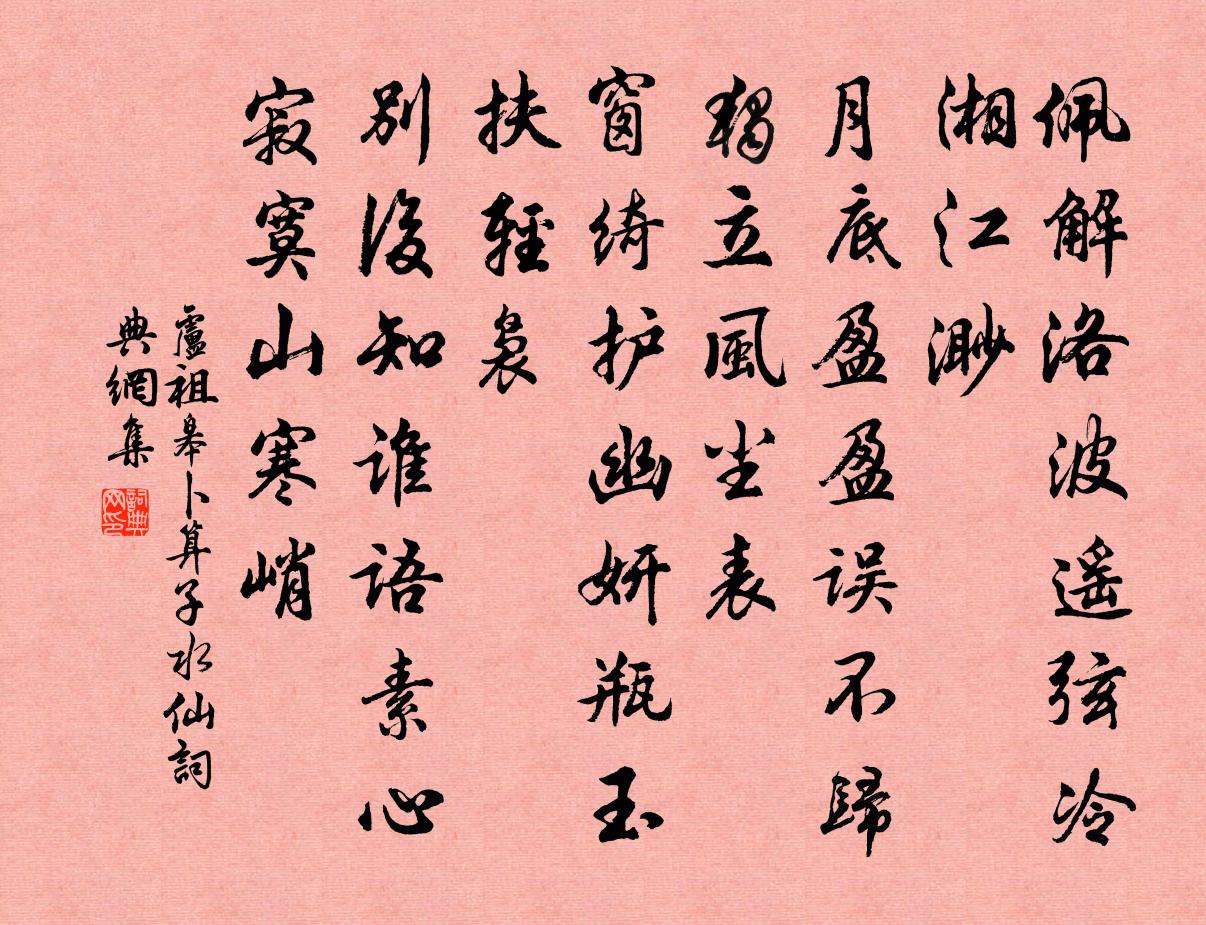 佩解洛波遥弦冷
湘江渺
月底盈盈误不歸
獨立風尘表
窗绮护幽妍瓶玉
扶輕裊
別後知谁语素心
寂寞山寒峭
盧祖皋卜算子水仙詞
典網集
詞典網印